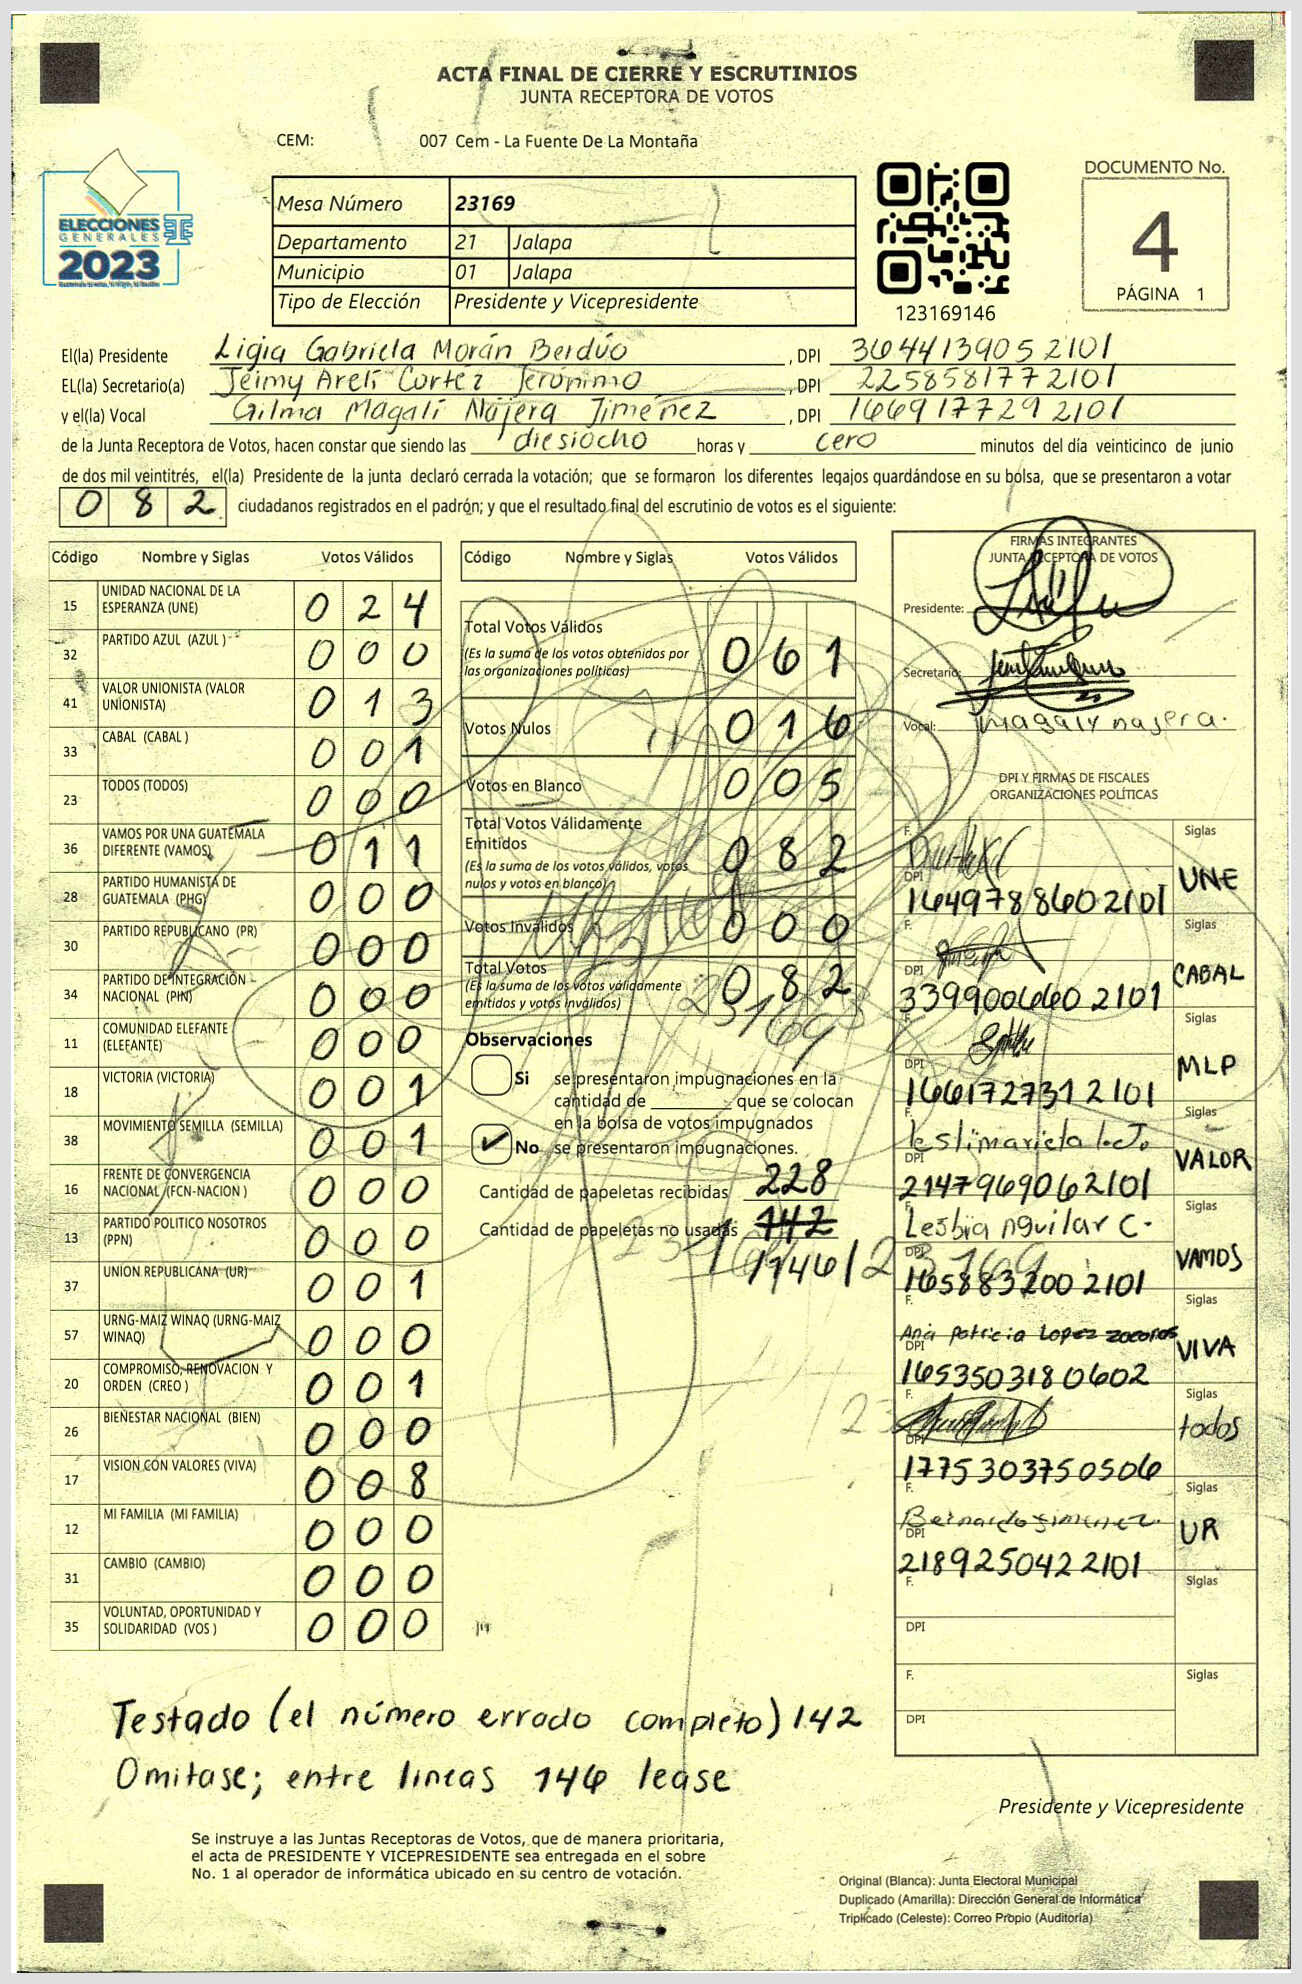 ACTA FINAL DE CIERRE Y ESCRUTINIOS
JUNTA RECEPTORA DE VOTOS
CEM: 007 Cem - La Fuente De La Montaña
ELECCIONES
GENERALES
2023
Mesa Número 23169
Departamento 21 Jalapa
Municipio 01 Jalapa
Tipo de Elección Presidente y Vicepresidente
123169146
DOCUMENTO No.
4
PÁGINA 1
El(la) Presidente Ligia Gabriela Morán Berdúo , DPI 3644139052101
EL(la) Secretario(a) Jeimy Arelí Cortéz Jerónimo , DPI 2258581772101
y el(la) Vocal Gilma Magalí Nájera Jiménez , DPI 1669177292101
de la Junta Receptora de Votos, hacen constar que siendo las diesiocho horas y cero minutos del día veinticinco de junio
de dos mil veintitrés, el(la) Presidente de la junta declaró cerrada la votación; que se formaron los diferentes legajos guardándose en su bolsa, que se presentaron a votar
082 ciudadanos registrados en el padrón; y que el resultado final del escrutinio de votos es el siguiente:
Código Nombre y Siglas Votos Válidos
15 UNIDAD NACIONAL DE LA ESPERANZA (UNE) 024
32 PARTIDO AZUL (AZUL ) 000
41 VALOR UNIONISTA (VALOR UNIONISTA) 013
33 CABAL (CABAL ) 001
23 TODOS (TODOS) 000
36 VAMOS POR UNA GUATEMALA DIFERENTE (VAMOS) 011
28 PARTIDO HUMANISTA DE GUATEMALA (PHG) 000
30 PARTIDO REPUBLICANO (PR) 000
34 PARTIDO DE INTEGRACIÓN NACIONAL (PIN) 000
11 COMUNIDAD ELEFANTE (ELEFANTE) 000
18 VICTORIA (VICTORIA) 001
38 MOVIMIENTO SEMILLA (SEMILLA) 001
16 FRENTE DE CONVERGENCIA NACIONAL (FCN-NACION ) 000
13 PARTIDO POLITICO NOSOTROS (PPN) 000
37 UNION REPUBLICANA (UR) 001
57 URNG-MAIZ WINAQ (URNG-MAIZ WINAQ) 000
20 COMPROMISO, RENOVACION Y ORDEN (CREO ) 001
26 BIENESTAR NACIONAL (BIEN) 000
17 VISION CON VALORES (VIVA) 008
12 MI FAMILIA (MI FAMILIA) 000
31 CAMBIO (CAMBIO) 000
35 VOLUNTAD, OPORTUNIDAD Y SOLIDARIDAD (VOS ) 000
Código Nombre y Siglas Votos Válidos
Total Votos Válidos 061
(Es la suma de los votos obtenidos por
las organizaciones políticas)
Votos Nulos 016
Votos en Blanco 005
Total Votos Válidamente
Emitidos 082
(Es la suma de los votos válidos, votos
nulos y votos en blanco)
Votos Inválidos 000
Total Votos 082
(Es la suma de los votos válidamente
emitidos y votos inválidos)
23169
Observaciones
Si se presentaron impugnaciones en la
cantidad de ______ que se colocan
en la bolsa de votos impugnados
No se presentaron impugnaciones.
Cantidad de papeletas recibidas 228
Cantidad de papeletas no usadas 142
146
23169
FIRMAS INTEGRANTES
JUNTA RECEPTORA DE VOTOS
Presidente:
Secretario:
Vocal: Magaly najera.
DPI Y FIRMAS DE FISCALES
ORGANIZACIONES POLÍTICAS
F. Siglas
DPI 1649788602101 UNE
F. Siglas
DPI 3399006602101 CABAL
F. Siglas
DPI 1661727312101 MLP
F. Siglas
DPI 2147969062101 VALOR
F. Lesbia Aguilar C. Siglas
DPI 1658832002101 VAMOS
F. Ana Patricia Lopez Siglas
DPI 1653503180602 VIVA
F. Siglas
DPI 1775303750506 todos
F. Bernardo Jimenez. Siglas
DPI 2189250422101 UR
F. Siglas
DPI
F. Siglas
DPI
Testado (el número errado completo) 142
Omitase; entre lineas 146 lease
Presidente y Vicepresidente
Se instruye a las Juntas Receptoras de Votos, que de manera prioritaria,
el acta de PRESIDENTE Y VICEPRESIDENTE sea entregada en el sobre
No. 1 al operador de informática ubicado en su centro de votación.
Original (Blanca): Junta Electoral Municipal
Duplicado (Amarilla): Dirección General de Informática
Triplicado (Celeste): Correo Propio (Auditoría)